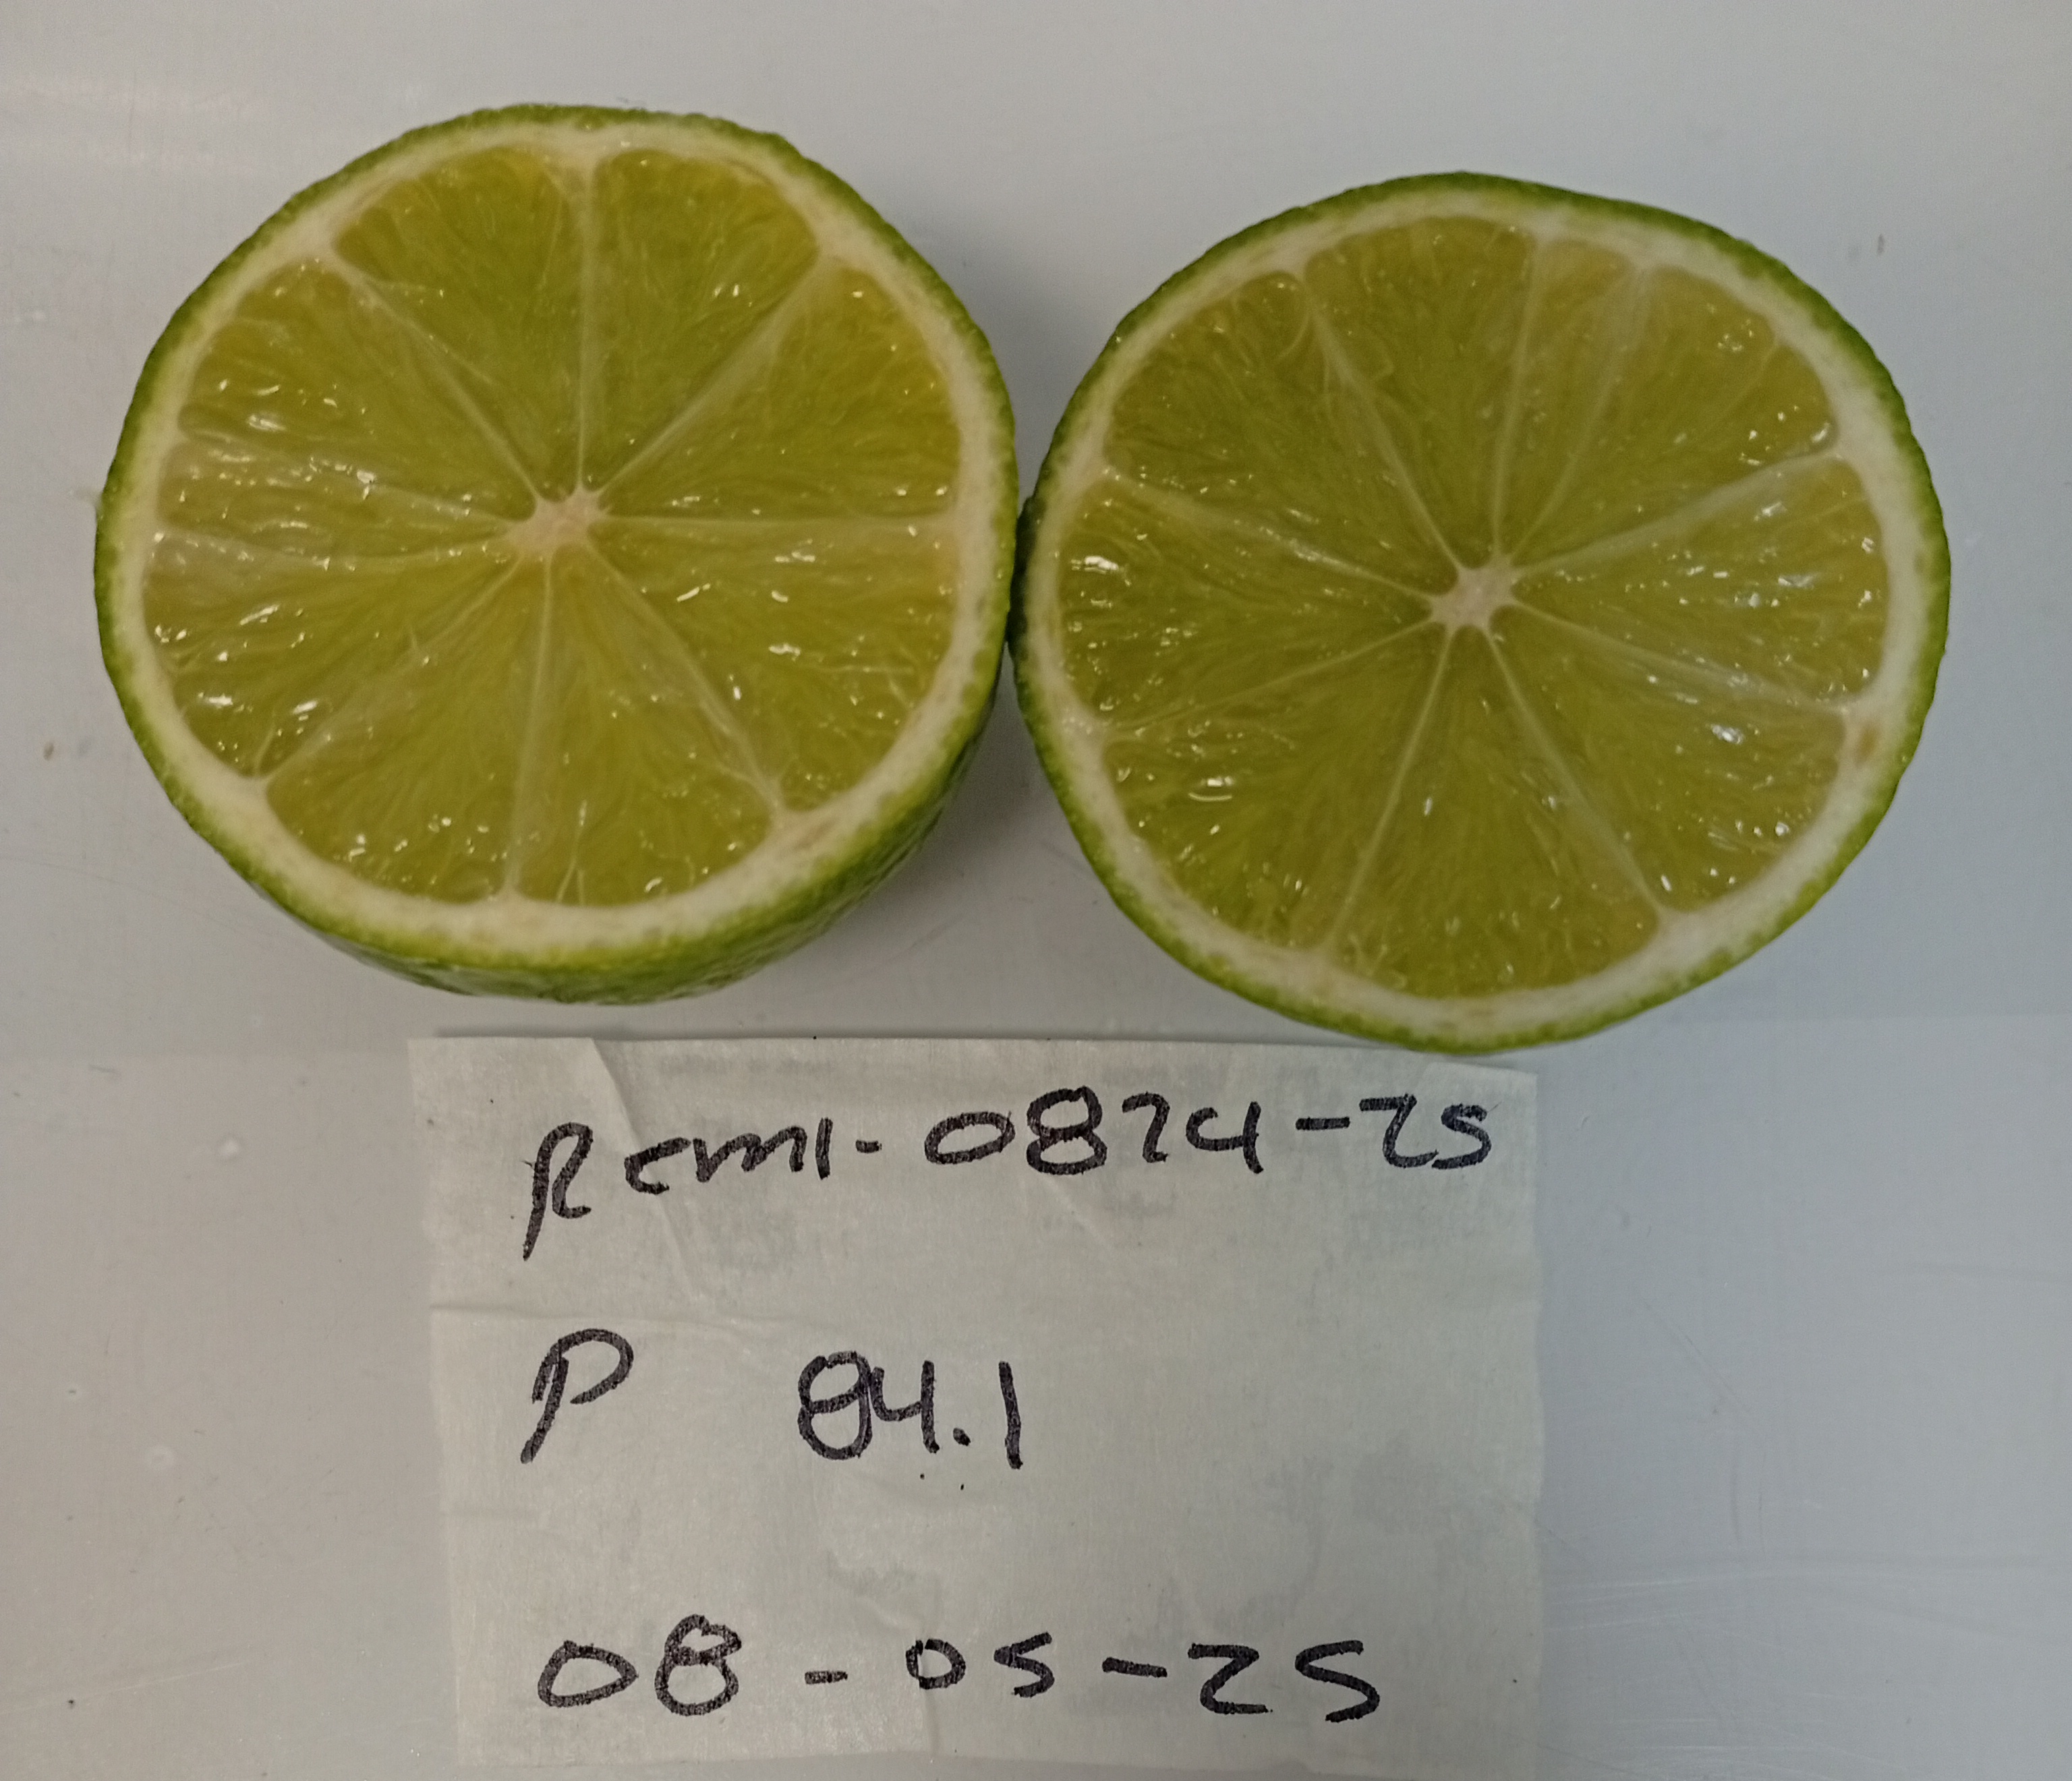 Remi-0824-25
P 84.1
08-05-25